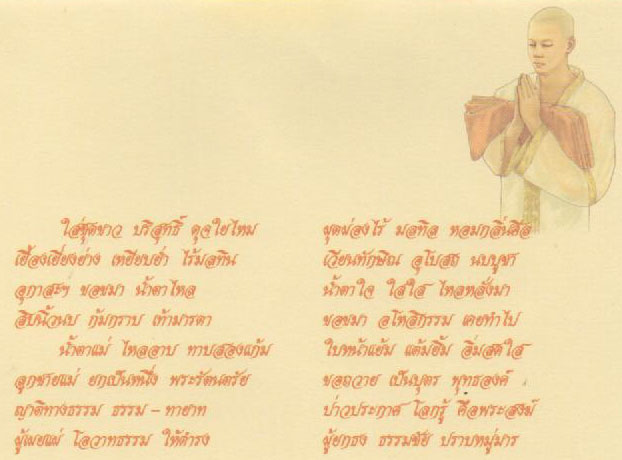 ใส่ชุดขาว บริสุทธิ์ ดุจใยไหม ผุดผ่องไร้ มลทิล หอมกลิ่นศีล
เยื้องเยี่ยงย่าง เหยียบย่ำ ไร้มลทิน เวียนทักษิณ อุโบสถ นบบูชา
อุกาสะฯ ขอขมา น้ำตาไหล น้ำตาใจ ใสใส ไหลหลั่งมา
สิบนิ้วนบ ก้มกราบ เท้ามารดา ขอขมา อโหสิกรรม เคยทำไป
น้ำตาแม่ ไหลอาบ ทาบสองแก้ม ใบหน้าแย้ม แต้มยิ้ม อิ่มสดใส
ลูกชายแม่ ยกเป็นหนึ่ง พระรัตนตรัย ขอถวาย เป็นบุตร พุทธองค์
ญาติทางธรรม ธรรม – ทายาท ป่าวประกาศ โลกรู้ คือพระสงฆ์
ผู้เผยแผ่ โอวาทธรรม ให้ดำรง ผู้ยกธง ธรรมชัย ปราบหมู่มาร